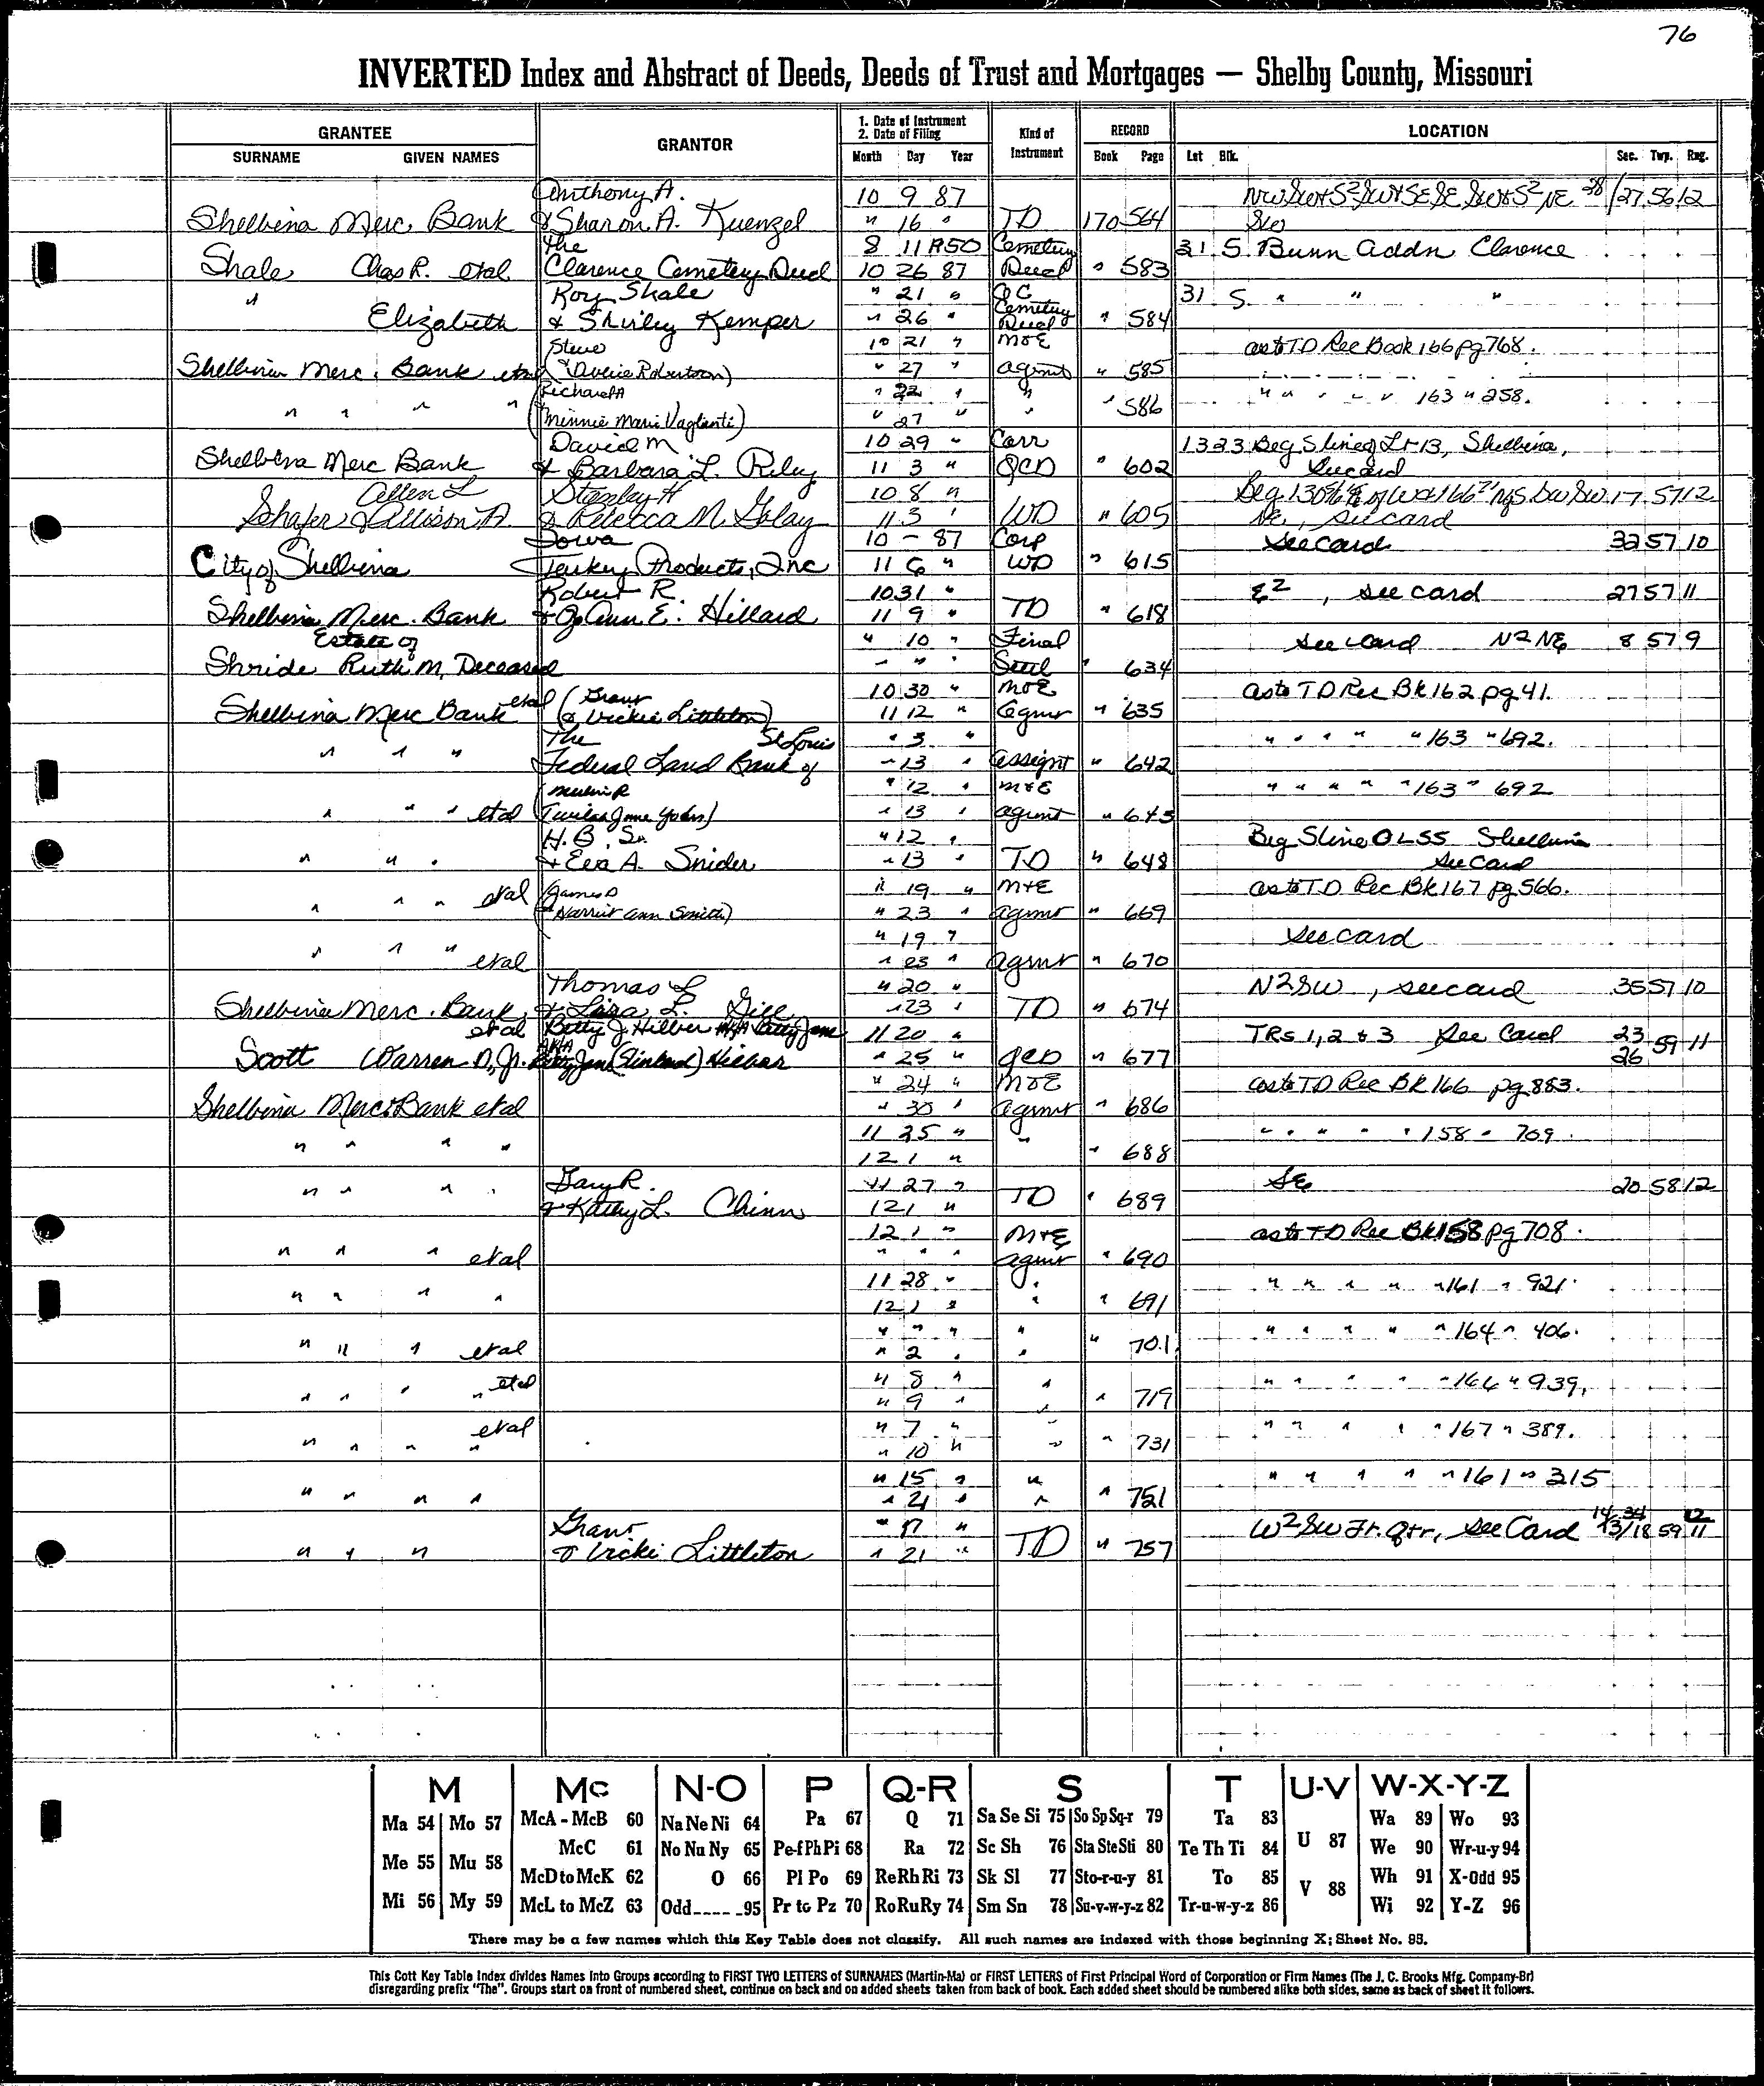 76
INVERTED Index and Abstract of Deeds, Deeds of Trust and Mortgages — Shelby County, Missouri
GRANTEE GRANTOR 1. Date of Instrument 2. Date of Filing Kind of Instrument RECORD LOCATION
SURNAME GIVEN NAMES Month Day Year Book Page Lot Blk. Sec. Twp. Rng.
Anthony A. 10 9 87 NW SW & S² SW & SE SE SW & S² NE 28/27 56 12
Shelbina Merc. Bank & Sharon A. Kuenzel " 16 " TD 170 564
The 8 11 1950 Cemetery 31 S. Bunn Addn Clarence
Shale Chas R. etal Clarence Cemetery Deed 10 26 87 Deed " 583
" Roy Shale " 21 " QC 31 S. " " "
Elizabeth & Shirley Kemper " 26 " Cemetery Deed " 584
Steve 10 21 " M&E as to TD Rec Book 166 pg 768.
Shelbina Merc. Bank etal Robertson) " 27 " agmt " 585
Richard A " 22 " " " " " " " 163 " 258.
" " " " (Minnie Marie Vaglienti) " 27 " " " 586
David M 10 29 " Corr 13 23 Beg S line of Lt 13, Shelbina,
Shelbina Merc Bank & Barbara L. Riley 11 3 " QCD " 602 See card
Allen L Stanley H 10 8 " Beg SW SW 17 57 12
Shafer & Allison A & Rebecca M. Golay 11 3 " WD " 605 see card
Iowa 10 - 87 Corp See card 32 57 10
City of Shelbina Turkey Products, Inc 11 6 " WD " 615
Robert R. 10 31 " E² , see card 27 57 11
Shelbina Merc. Bank & JoAnn E. Hillard 11 9 " TD " 618
Estate of " 10 " Final see card N2 NE 8 57 9
Shride Ruth M, Deceased " " " Settl " 634
etal (Grant 10 30 " M&E as to TD Rec Bk 162 pg 41.
Shelbina Merc Bank & Vickie Littleton) 11 12 " agmt " 635
The St Louis " 3 " " " " " " 163 " 692.
" " " Federal Land Bank of " 13 " assignt " 642
" 12 " M&E " " " " " 163 " 692
" " " etal (Twila Jane Yoder) " 13 " agmt " 643
H.B. Sr. " 12 " Beg S line OL 55 Shelbina
" " " & Eva A. Snider " 13 " TD " 648 See Card
etal (James D " 19 " M&E as to TD Rec Bk 167 pg 566.
" " " & Harriet Ann Smith) " 23 " agmt " 669
" 19 " See card
" " " etal " 23 " agmt " 670
Thomas L " 20 " N2 SW , see card 35 57 10
Shelbina Merc. Bank & Lisa L. Gill " 23 " TD " 674
etal Betty J. Hilber AKA Betty Jane 11 20 " TRS 1, 2 & 3 See Card 23
Scott Warren D, Jr. AKA " 25 " QCD " 677 26 59 11
" 24 " M&E as to TD Rec Bk 166 pg 883.
Shelbina Merc Bank etal " 30 " agmt " 686
11 25 " " " " " " " 158 " 709.
" " " " 12 1 " " 688
Gary R. 11 27 " SE 20 58 12
" " " " & Kathy L. Chinn 12 1 " TD " 689
12 1 " M&E as to TD Rec Bk 158 pg 708.
" " " etal " " " agmt " 690
11 28 " " " " " " " 161 " 921.
" " " " 12 1 " " " 691
" " " " " " " " " 164 " 406.
" " " etal " 2 " " " 701
etal " 8 " " " " " " " 164 " 939.
" " " " " 9 " " " 719
etal " 7 " " " " " " " 167 " 389.
" " " " " 10 " " " 731
" 15 " " " " " " " 161 " 315
" " " " " 21 " " " 751
Grant " 17 " W² SW Fr. Qtr, See Card 14 24 12
" " " & Vicki Littleton " 21 " TD " 757 13/18 59 11
M Mc N-O P Q-R S T U-V W-X-Y-Z
Ma 54 Mo 57 McA - McB 60 Na Ne Ni 64 Pa 67 Q 71 Sa Se Si 75 So Sp Sq-r 79 Ta 83 Wa 89 Wo 93
McC 61 No Nu Ny 65 Pe-f Ph Pi 68 Ra 72 Sc Sh 76 Sta Ste Sti 80 Te Th Ti 84 U 87 We 90 Wr-u-y 94
Me 55 Mu 58 McD to McK 62 O 66 Pl Po 69 Re Rh Ri 73 Sk Sl 77 Sto-r-u-y 81 To 85 V 88 Wh 91 X-Odd 95
Mi 56 My 59 McL to McZ 63 Odd ---- 95 Pr to Pz 70 Ro Ru Ry 74 Sm Sn 78 Su-v-w-y-z 82 Tr-u-w-y-z 86 Wi 92 Y-Z 96
There may be a few names which this Key Table does not classify. All such names are indexed with those beginning X; Sheet No. 95.
This Cott Key Table Index divides Names into Groups according to FIRST TWO LETTERS of SURNAMES (Martin-Ma) or FIRST LETTERS of First Principal Word of Corporation or Firm Names (The J. C. Brooks Mfg. Company-Br)
disregarding prefix "The". Groups start on front of numbered sheet, continue on back and on added sheets taken from back of book. Each added sheet should be numbered alike both sides, same as back of sheet it follows.